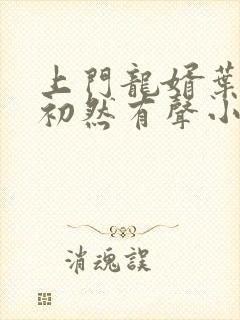 上門龍婿葉
初然有聲小
消魂誤